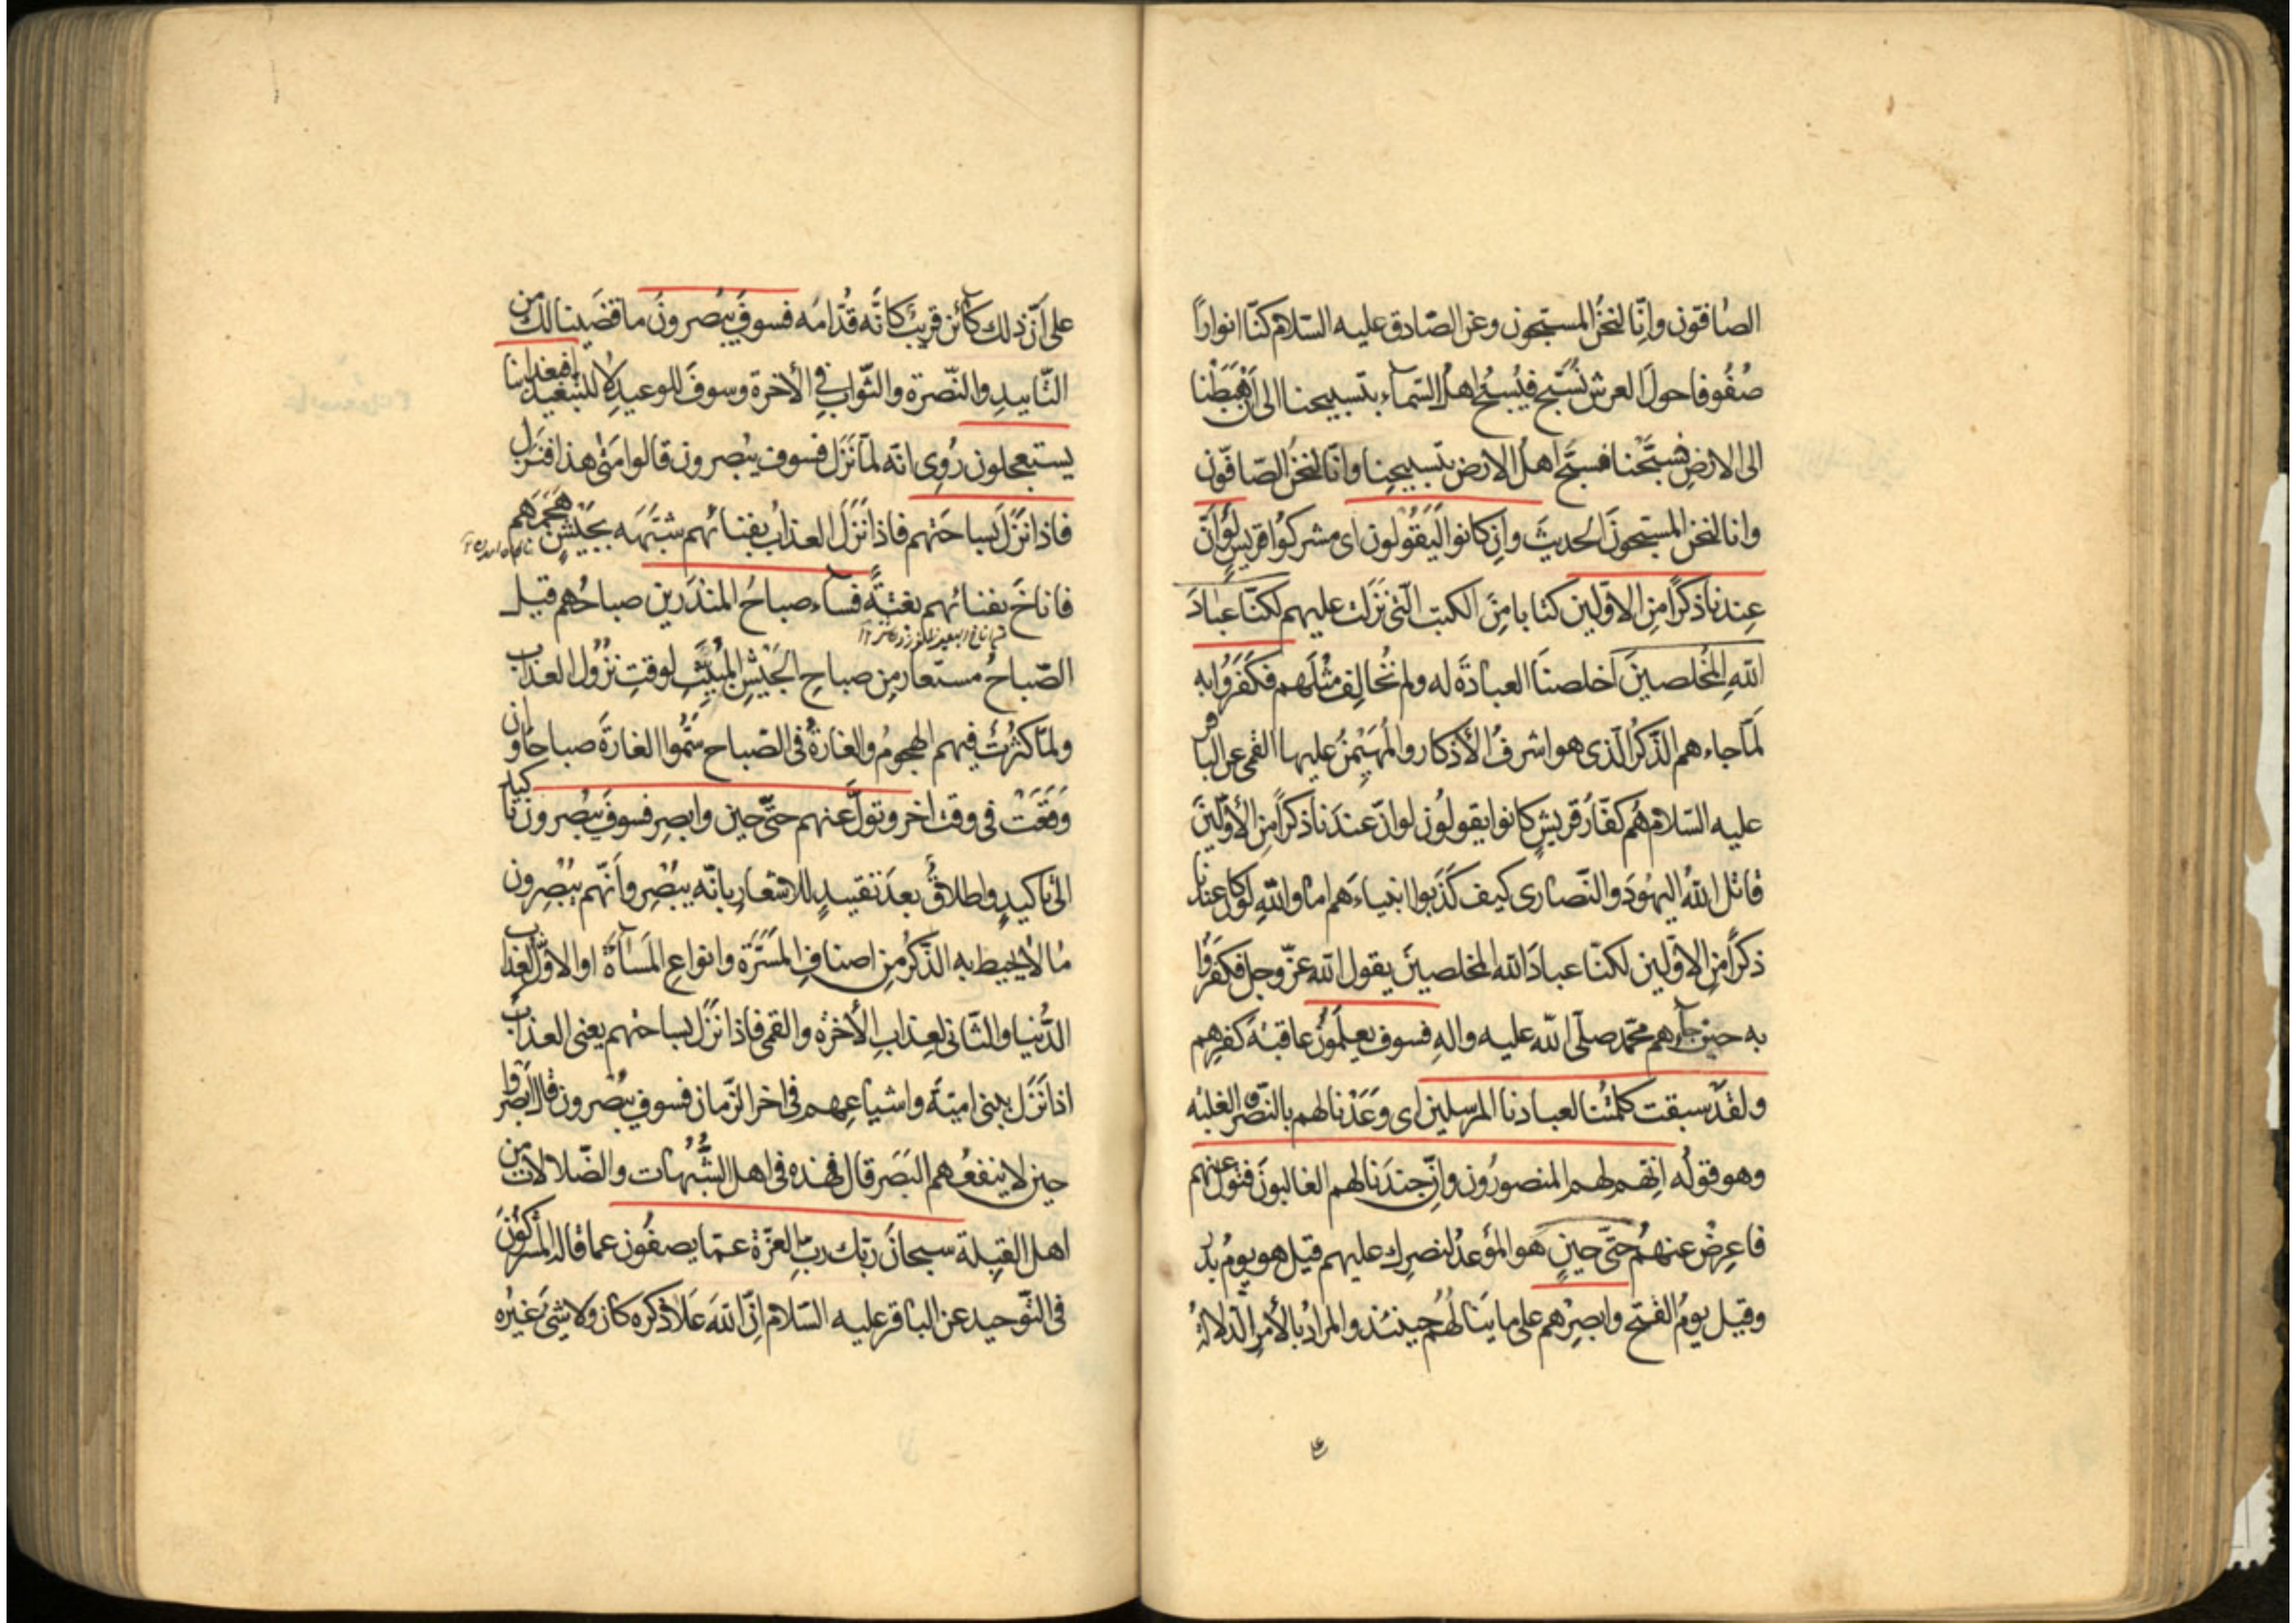 الصافّون وانّا لنحن المسبّحون وعن الصّادق عليه السّلام كنّا انواراً
صُفُوفا حول العرش نُسَبّح فيُسبّح اهل السّماء بتسبيحنا الى ان هَبَطْنا
الى الارض فسبّحنا فسبّح اهل الارض بتسبيحنا وانّا لنحن الصّافّون
وانا لنحن المسبّحون الحديث وان كانوا ليَقُولون اى مشركوا قريش لو انّ
عندنا ذكراً من الاوّلين كتابا من الكتب الّتى نزلت عليهم لكنّا عبادَ
اللّه المُخلصين اخلصنا العبادة له ولم نُخالف مثلهم فكَفَرُوا به
لمّا جاءهم الذّكر الّذى هو اشرف الأذكار والمُهَيمِنُ عليها القمى عن الباقر
عليه السّلام هُم كفّار قريش كانوا يقولون لو انّ عندنا ذكراً من الأوّلين
قاتل اللّه اليهود والنّصارى كيف كذّبوا انبياءهم اما واللّه لو كان عندنا
ذكراً من الاوّلين لكنّا عبادَ اللّه المخلصين يقول اللّه عزّ وجل فكفروا
به حين جاءهم محمّد صلّى اللّه عليه واله فسوف يعلمون عاقبة كفرهم
ولقد سبقت كلمتنا لعبادنا المرسلين اى وَعَدْنا لهم بالنّصر والغلبة
وهو قوله انّهم لهم المنصورُون وانّ جندَنا لهم الغالبون فتولّ عنهم
فاعرِضْ عنهم حتّى حينٍ هو الموعد لنصرك عليهم قيل هو يوم بدر
وقيل يوم الفتح وابصِرْهم على ما ينالُهُم حينئذ والمراد بالأمر الدّلالة
على أنّ ذلك كائن قريب كأنّه قُدّامَه فسوف يُبصرونَ ما قضَينا لك من
التّاييد والنّصرة والثّواب في الأخرة وسوف للوعيد لا للتبعيد افبعذابنا
يستعجلون رُوِى انّه لمّا نَزَل فسوف يبصرون قالوا متى هذا فنزل
فاذا نَزَلَ بساحتهم فاذا نَزَلَ العذاب بفنائهم شبّهَه بجيشٍ هَجَمَهم
فاناخَ بفنائهم بغتةً فساء صباحُ المنذَرين صباحُهم قيل
الصّباحُ مستعار من صباح الجَيْش المُبَيِّتِ لوقت نزُول العذاب
ولمّا كَثُرَت فيهم الهجومُ والغارةُ فى الصّباح سَمُّوا الغارةَ صباحًا وان
وَقَعَتْ فى وقت اخر وتولّ عنهم حتّى حين وابصِر فسوف يُبصرون تاكيد
الى تاكيدٍ واطلاقٌ بعدَ تقييدٍ للاشعار بانّه يُبْصِر وأنّهم يُبْصِرون
ما لا يحيط به الذّكر من اصناف المَسَرّة وانواع المَسَاءَة او الاوّل لعذاب
الدُّنيا والثّانى لعذاب الأخرة والقمى فاذا نَزَل بساحتهم يعنى العذاب
اذا نَزَل ببنى اميّة واشياعهم فى اخر الزّمان فسوف يُبصرون قال ابصروا
حين لا ينفعُهم البَصَر قال فهذه فى اهل الشُّبُهات والضّلالات من
اهل القبلة سبحانَ ربّك ربّ العزّة عمّا يصفُون عمّا قاله المشركونَ
فى التّوحيد عن الباقر عليه السّلام انّ اللّهَ عَلا ذكره كان ولا شَىءَ غَيرُه